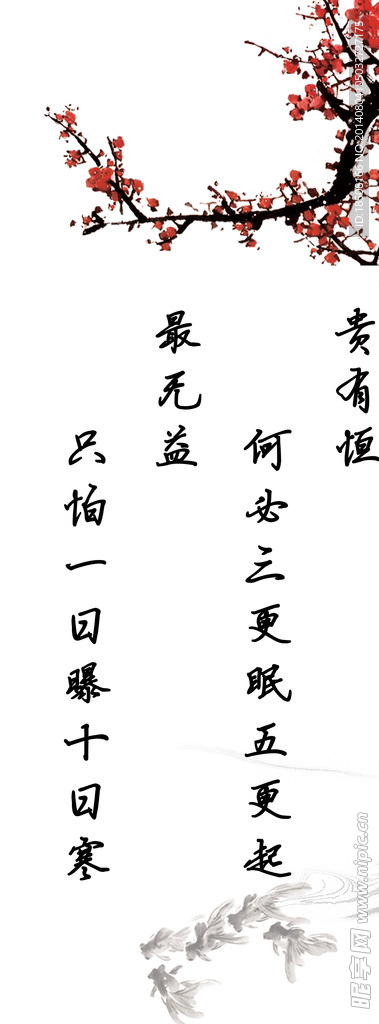 贵有恒
何必三更眠五更起
最无益
只怕一日曝十日寒
昵享网 www.nipic.cn